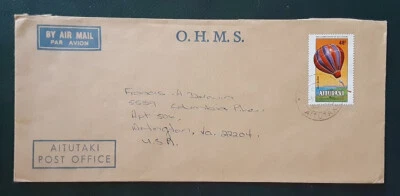 BY AIR MAIL
PAR AVION
O.H.M.S.
48c
AITUTAKI
Francis H
5554 Columbia Pike
Apt 504
Arlington, Va. 22204
U.S.A.
AITUTAKI
POST OFFICE